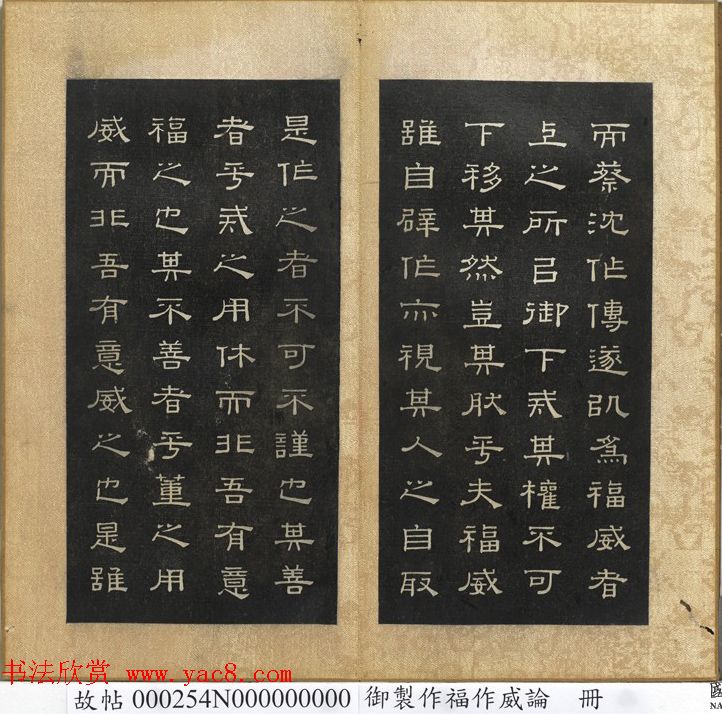 而蔡沈作傳遂以為福威者
上之所以御下戒其權不可
下移其然豈其然乎夫福威
雖自辟作亦視其人之自取
是作之者不可不謹也其善
者乎戒之用休而非吾有意
福之也其不善者乎董之用
威而非吾有意威之也是雖
书法欣赏 www.yac8.com
故帖 000254N000000000 御製作福作威論 冊